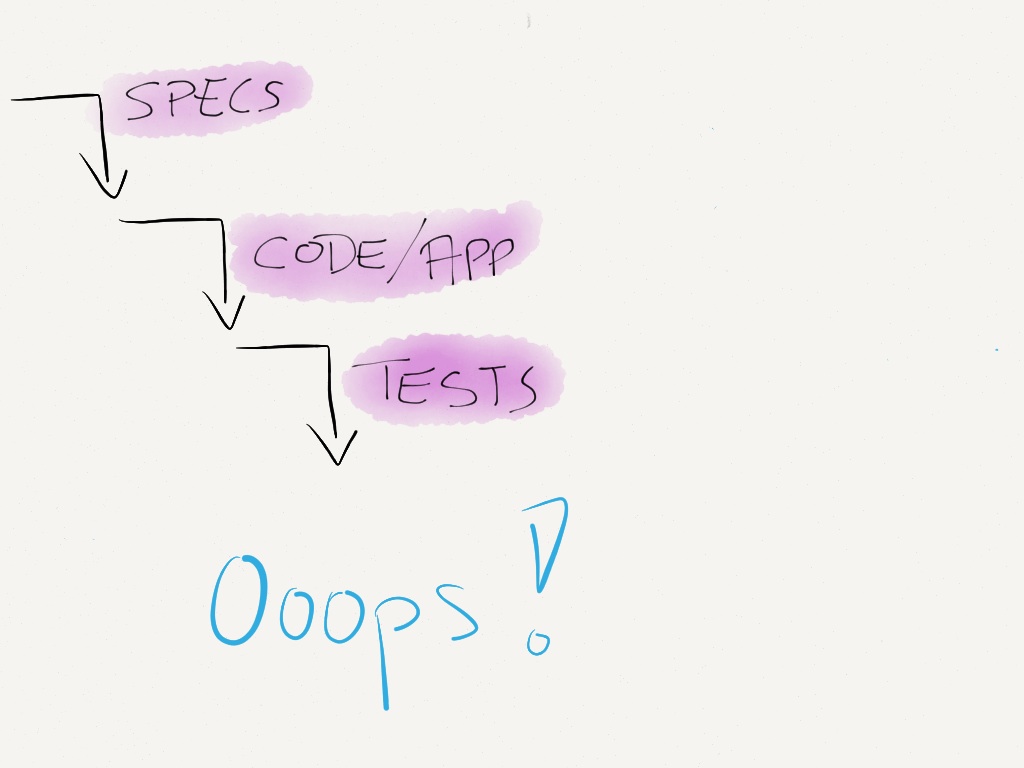 SPECS
CODE/APP
TESTS
Ooops!